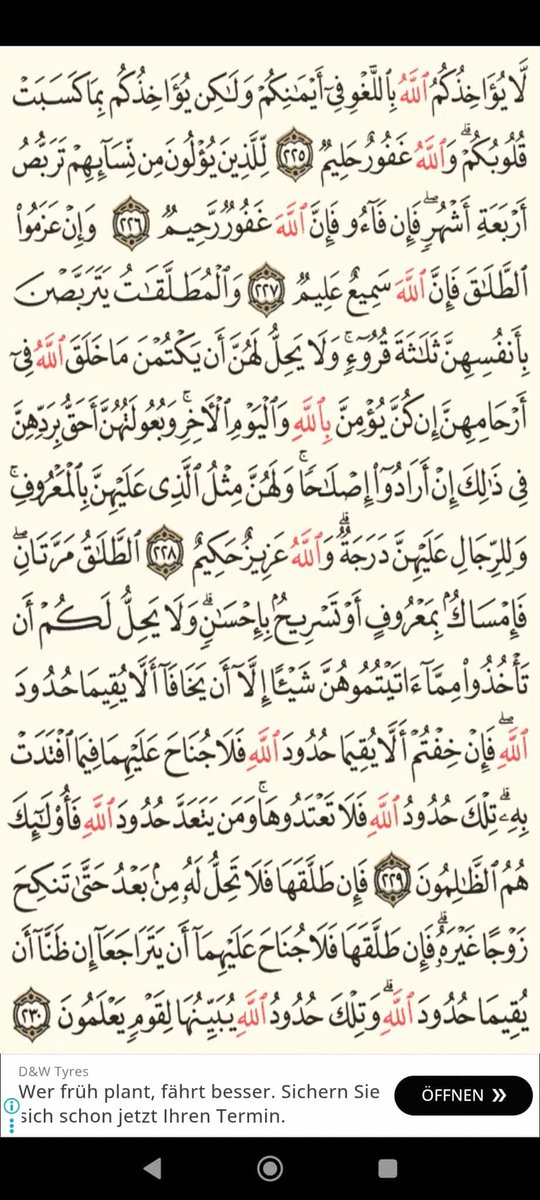 لَّا يُؤَاخِذُكُمُ ٱللَّهُ بِٱللَّغْوِ فِىٓ أَيْمَـٰنِكُمْ وَلَـٰكِن يُؤَاخِذُكُم بِمَا كَسَبَتْ
قُلُوبُكُمْ ۗ وَٱللَّهُ غَفُورٌ حَلِيمٌ ٢٢٥ لِّلَّذِينَ يُؤْلُونَ مِن نِّسَآئِهِمْ تَرَبُّصُ
أَرْبَعَةِ أَشْهُرٍ ۖ فَإِن فَآءُو فَإِنَّ ٱللَّهَ غَفُورٌ رَّحِيمٌ ٢٢٦ وَإِنْ عَزَمُوا۟
ٱلطَّلَـٰقَ فَإِنَّ ٱللَّهَ سَمِيعٌ عَلِيمٌ ٢٢٧ وَٱلْمُطَلَّقَـٰتُ يَتَرَبَّصْنَ
بِأَنفُسِهِنَّ ثَلَـٰثَةَ قُرُوٓءٍ ۚ وَلَا يَحِلُّ لَهُنَّ أَن يَكْتُمْنَ مَا خَلَقَ ٱللَّهُ فِىٓ
أَرْحَامِهِنَّ إِن كُنَّ يُؤْمِنَّ بِٱللَّهِ وَٱلْيَوْمِ ٱلْـَٔاخِرِ ۚ وَبُعُولَتُهُنَّ أَحَقُّ بِرَدِّهِنَّ
فِى ذَٰلِكَ إِنْ أَرَادُوٓا۟ إِصْلَـٰحًا ۚ وَلَهُنَّ مِثْلُ ٱلَّذِى عَلَيْهِنَّ بِٱلْمَعْرُوفِ ۚ
وَلِلرِّجَالِ عَلَيْهِنَّ دَرَجَةٌ ۗ وَٱللَّهُ عَزِيزٌ حَكِيمٌ ٢٢٨ ٱلطَّلَـٰقُ مَرَّتَانِ ۖ
فَإِمْسَاكٌۢ بِمَعْرُوفٍ أَوْ تَسْرِيحٌۢ بِإِحْسَـٰنٍ ۗ وَلَا يَحِلُّ لَكُمْ أَن
تَأْخُذُوا۟ مِمَّآ ءَاتَيْتُمُوهُنَّ شَيْـًٔا إِلَّآ أَن يَخَافَآ أَلَّا يُقِيمَا حُدُودَ
ٱللَّهِ ۖ فَإِنْ خِفْتُمْ أَلَّا يُقِيمَا حُدُودَ ٱللَّهِ فَلَا جُنَاحَ عَلَيْهِمَا فِيمَا ٱفْتَدَتْ
بِهِۦ ۗ تِلْكَ حُدُودُ ٱللَّهِ فَلَا تَعْتَدُوهَا ۚ وَمَن يَتَعَدَّ حُدُودَ ٱللَّهِ فَأُو۟لَـٰٓئِكَ
هُمُ ٱلظَّـٰلِمُونَ ٢٢٩ فَإِن طَلَّقَهَا فَلَا تَحِلُّ لَهُۥ مِنۢ بَعْدُ حَتَّىٰ تَنكِحَ
زَوْجًا غَيْرَهُۥ ۗ فَإِن طَلَّقَهَا فَلَا جُنَاحَ عَلَيْهِمَآ أَن يَتَرَاجَعَآ إِن ظَنَّآ أَن
يُقِيمَا حُدُودَ ٱللَّهِ ۗ وَتِلْكَ حُدُودُ ٱللَّهِ يُبَيِّنُهَا لِقَوْمٍ يَعْلَمُونَ ٢٣٠
D&W Tyres
Wer früh plant, fährt besser. Sichern Sie
sich schon jetzt Ihren Termin.
ÖFFNEN